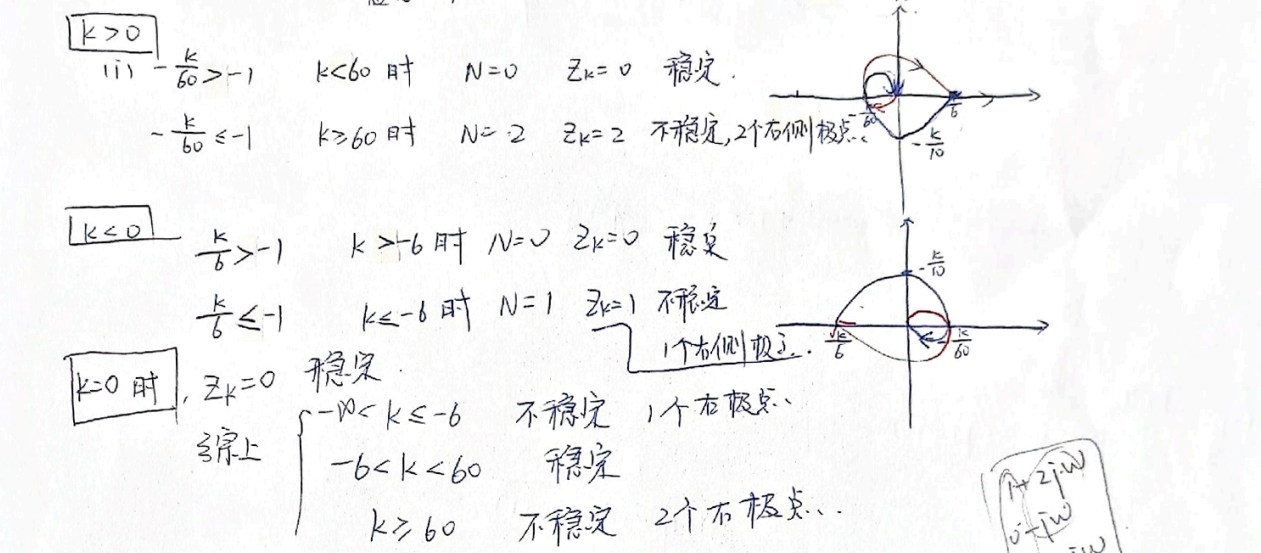 k>0
(i) -k/60>-1 k<60 时 N=0 Zk=0 稳定.
-k/60≤-1 k≥60 时 N=-2 Zk=2 不稳定,2个右侧极点.
-k/60
k/6
-k/10
k<0
k/6>-1 k>-6 时 N=0 Zk=0 稳定
k/6≤-1 k≤-6 时 N=1 Zk=1 不稳定
1个右侧极点.
-k/10
k/6
k/60
k=0 时, Zk=0 稳定.
综上
-∞<k≤-6 不稳定 1个右极点、
-6<k<60 稳定
k≥60 不稳定 2个右极点..
1+2jω
jω